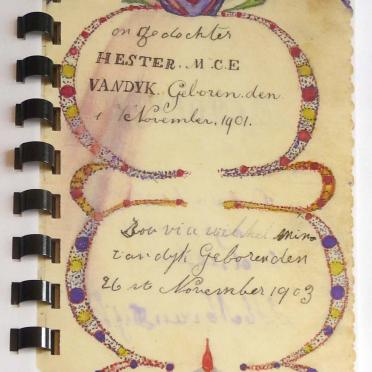 on ge dochter
HESTER. M.C.E
VANDYK. Geboren. den
1 November. 1901.
van dyk Geboren den
26 st November 1903